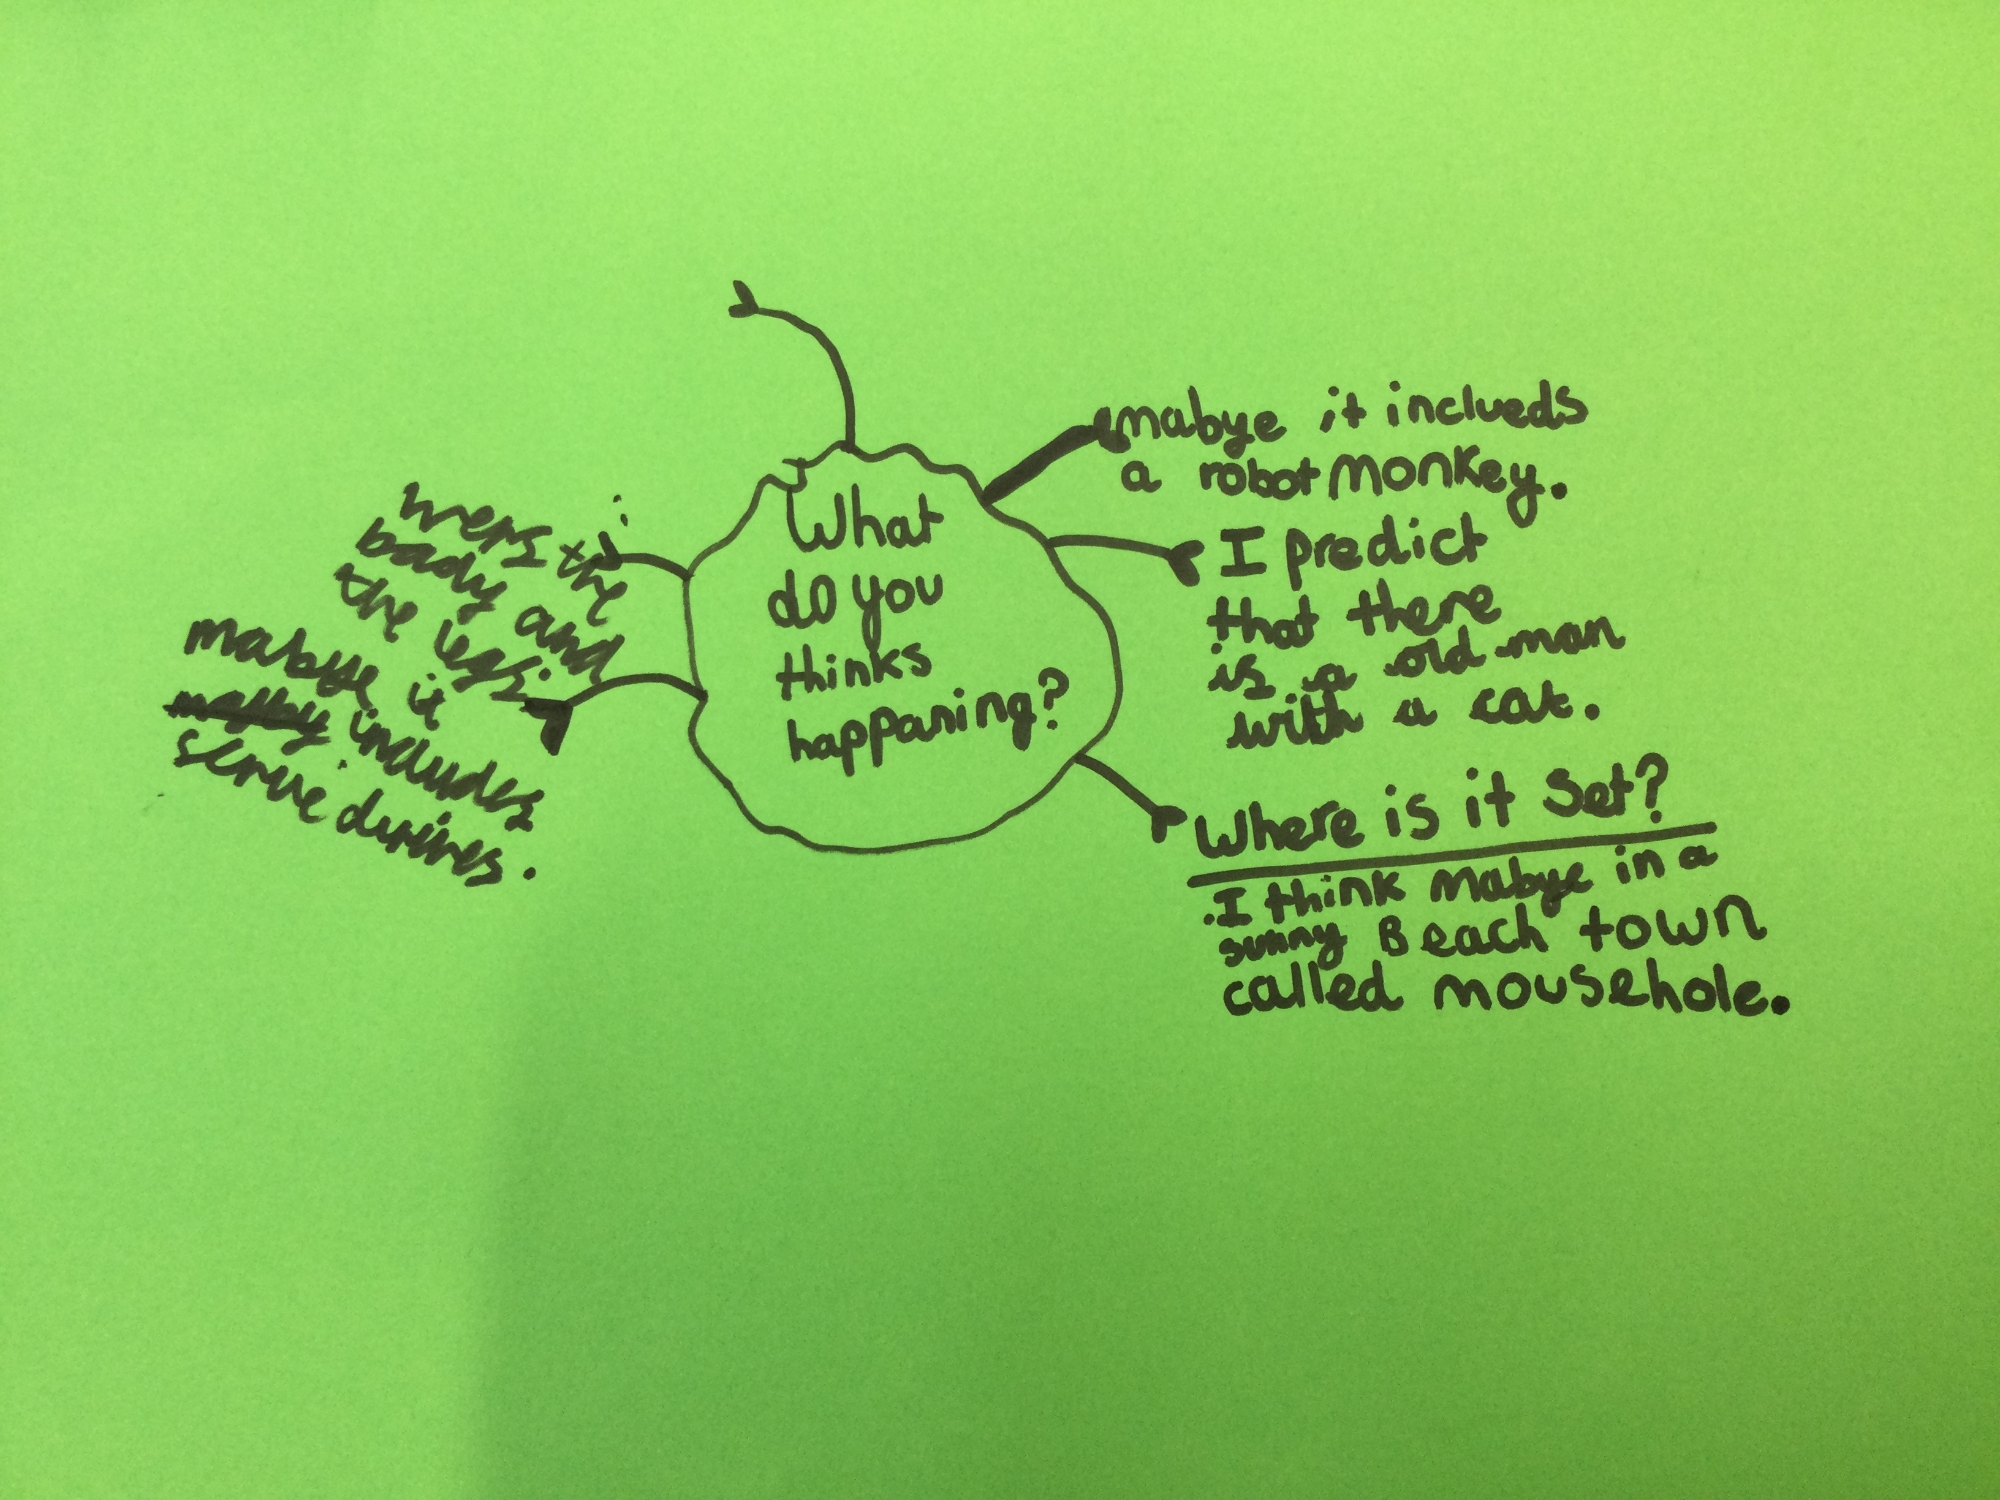 What
do you
thinks
happaning?
mabye it inclueds
a robot monkey.
I predict
that there
is a old man
with a cat.
Where is it set?
.I think mabye in a
sunny Beach town
called mousehole.
wers the
bady and
the legs.
mabye it
includes